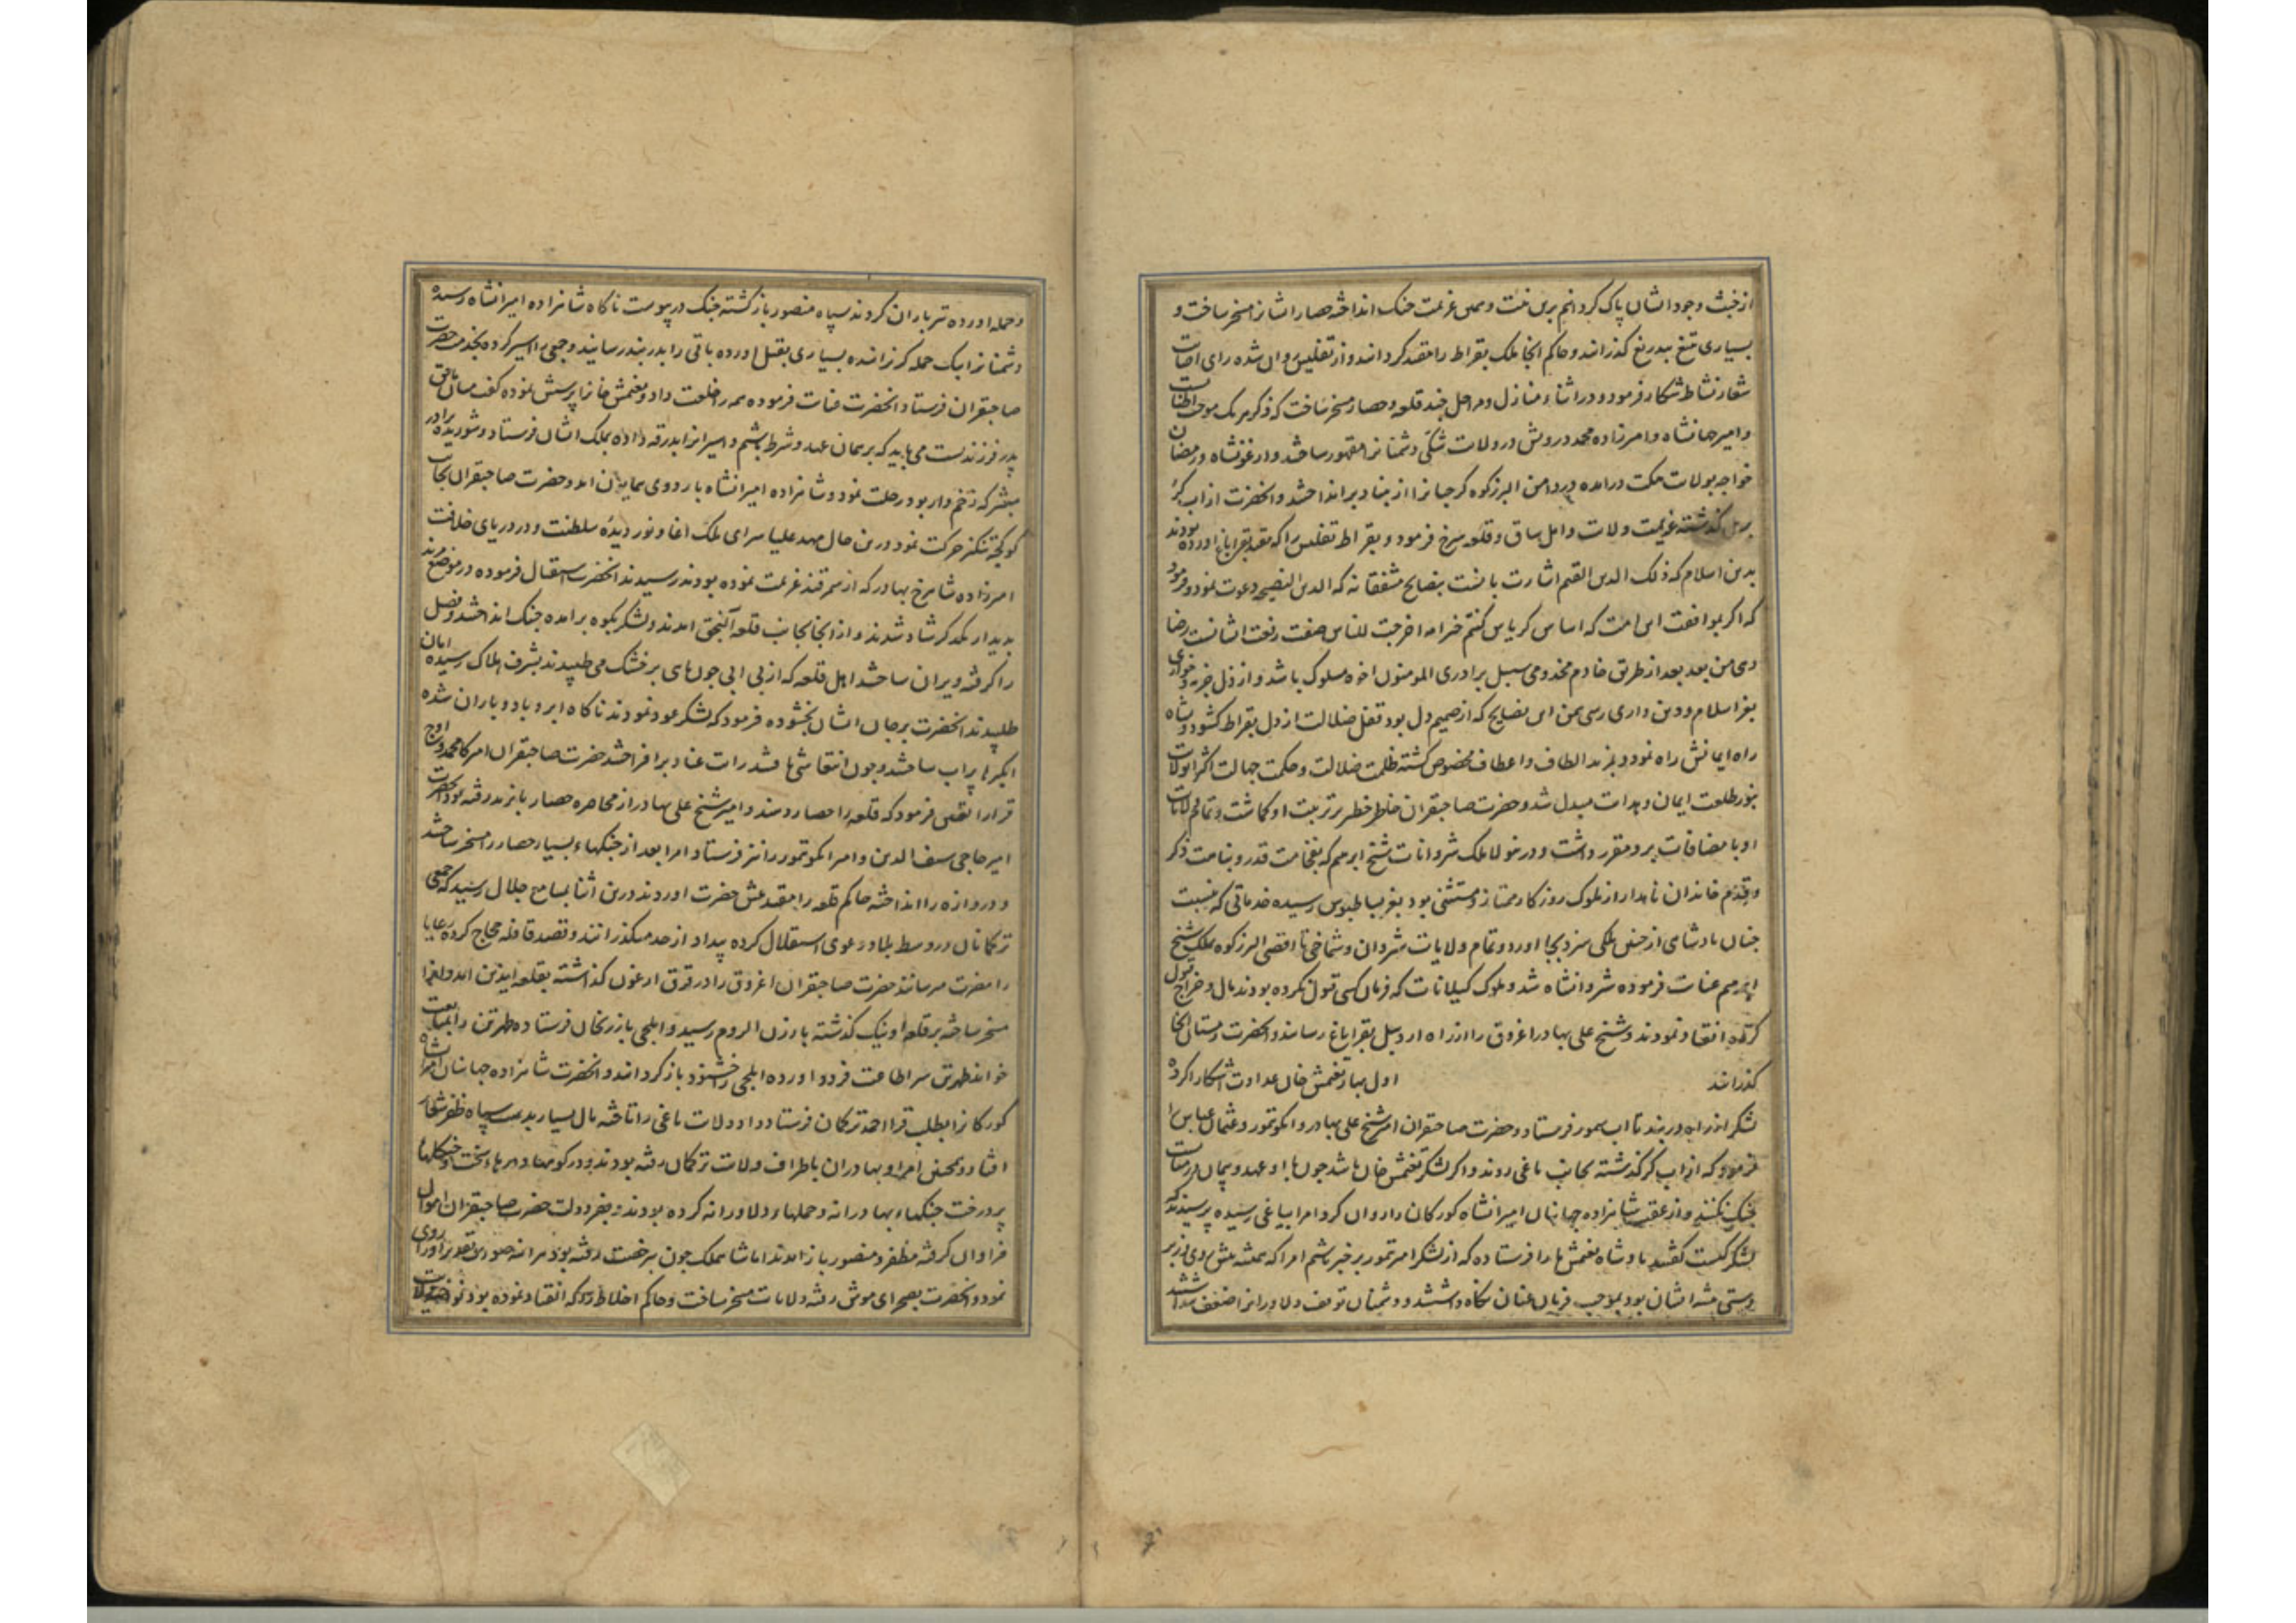 از خبث وجود ایشان پاک کردانم برین نیت و یمن عزیمت جنک انداخته حصار ایشانرا مسخر ساخت و
بسیاری تیغ بیدریغ کذرانند و حاکم انجا ملک بقراط را مقید کردانند و از تفلیس روان شده رای اصابت
شعار نشاط شکار فرمود و در اثناء منازل و مراحل چند قلعه و حصار مسخر ساخت که ذکر هر یک موجب اطنابست
و امیر جهانشاه و امیرزاده محمد درویش در ولایت شکی دشمنانرا مقهور ساختند و ارغونشاه و رمضان
خواجه بولایت درآمده در دامن البرز کوه کرجیانرا از بنیاد برانداختند و انحضرت از اب کر
کذشته عزیمت ولایت و اهل ساق و قلعه سرخ فرمود و بقراط تفلیس را که مقید بقراباغ آورده بودند
بدین اسلام که ذلک الدین القیم اشارت بانست بنصایح مشفقانه که الدین النصیحه دعوت نمود و فرمود
که اکر بموافقت این امت که اساس کریاس کنتم خیر امة اخرجت للناس صفت رفعت ایشانست رضا
دهی من بعد از طریق خادم مخدومی سبیل برادری المومنون اخوه مسلوک باشد و از ذل جزیه و خواری
بعز اسلام و دین داری رسی یمن این نصایح که از صمیم دل بود قفل ضلالت از دل بقراط کشود و بشاه
راه ایمانش راه نمود و بمزید الطاف و اعطاف مخصوص کشته ظلمت ضلالت و جهالت اکثر ان ولایت
بنور طلعت ایمان و هدایت مبدل شد و حضرت صاحبقران خاطر خطیر بر تربیت او کماشت و تمام ولایات
او با مضافات برو مقرر داشت و درینولا ملک شروانات شیخ ابرهیم که بفخامت قدر و نباهت ذکر
و قدم خاندان نامدار از ملوک روزکار ممتاز و مستثنی بود بعز بساطبوس رسیده خدماتی که نسبت
چنان پادشاهی از چنین ملکی سزد بجا اورد و تمام ولایات شروان و شماخی تا اقصی البرز کوه بملک شیخ
ابرهیم عنایت فرموده شروانشاه شد و ملوک کیلانات که فرمان کسی قبول نکرده بودند مال و خراج قبول
کرده انقیاد نمودند و شیخ علی بهادر اغروق را از راه اردبیل بقراباغ رسانید و انحضرت زمستان انجا
کذرانید اول بهار تغتمش خان عداوت اشکارا کرده
لشکر از راه دربند تا اب سمور فرستاد و حضرت صاحبقران امیر شیخ علی بهادر و ایکوتمور و عثمان عباس را
فرمود که از اب کر کذشته بجانب یاغی روند و اکر لشکر تغتمش خان باشد چون با او عهد و پیمان درمیانست
جنک نکنند و از عقب شاهزاده جهانیان امیرانشاه کورکان را روان کرد امرا بیاغی رسیده پرسیدند که
لشکر کیست کفتند پادشاه تغتمش ما را فرستاده که از لشکر امیر تمور بر خبر باشیم امرا که همیشه پیش
دستی پیشه ایشان بود بموجب فرمان عنان نکاه داشتند و دشمنان توقف دلاورانرا ضعف پنداشتند
و حمله اورده تیر باران کردند سپاه منصور باز کشته جنک در پیوست ناکاه شاهزاده امیرانشاه رسیده
دشمنانرا بیک حمله کریزانیده بسیاری بقتل اورده باقی را بدربند رسانیدند و جمعی را اسیر کرده بخدمت حضرت
صاحبقران فرستاد انحضرت عنایت فرموده همه را خلعت داد و تغتمش خانرا پرسش نموده کفت میان ما حق
پدر فرزندیست می باید که بر همان عهد و شرط باشیم و اسیرانرا بدرقه داده بملک ایشان فرستاد و شوریده برادر
مبشر که زخم دار بود رحلت نمود و شاهزاده امیرانشاه باردوی همایون امد و حضرت صاحبقران بجانب
کوکچه تنکیز حرکت نمود درین حال مهد علیا سرای ملک اغا و نور دیدۀ سلطنت و در دریای خلافت
امیرزاده شاهرخ بهادر که از سمرقند عزیمت نموده بودند رسیدند انحضرت استقبال فرموده در موضع مرند
بدیدار یکدکر شاد شدند و از انجا بجانب قلعه آلنجق امدند و لشکر بکوه برامده جنک انداختند و فصیل
را کرفته ویران ساختند اهل قلعه که از بی ابی چون ماهی بر خشک می طپیدند بشرف هلاک رسیده امان
طلبیدند انحضرت بر جان ایشان بخشوده فرمود که لشکر عود نمودند ناکاه ابر و باد و باران شده
ابکیرها پر اب ساختند و چون انتعاشی یافتند رایت عناد برافراختند حضرت صاحبقران امیر محمد و اوج
قرارا تعیین فرمود که قلعه را حصار دهند و امیر شیخ علی بهادر از محاصره حصار بایزید رفته بود انحضرت
امیر حاجی سیف الدین و امیر ایکوتمور را نیز فرستاد امرا بعد از جنکهاء بسیار حصار را مسخر ساختند
و دروازه را انداخته حاکم قلعه را مقید پیش حضرت اوردند درین اثنا بمسامع جلال رسید که جمعی
ترکمانان در وسط بلاد دعوی استقلال کرده بیداد از حد میکذرانند و قصد قافله حجاج کرده رعایا
را مضرت میرسانند حضرت صاحبقران اغروق را در قرق ارغون کذاشته بقلعه ایدین امد و انرا
مسخر ساخته بر قلعه اونیک کذشته بارزن الروم رسید و ایلچی بارزنجان فرستاده طهرتن را بمتابعت
خواند طهرتن سر اطاعت فرود اورده ایلچی را خشنود باز کردانند و انحضرت شاهزاده جهانیان امیرانشاه
کورکانرا بطلب قرا احمد ترکمان فرستاد و او ولایت یاغی را تاخته مال بسیار بدست سپاه ظفر شعار
افتاد و همچنین امرا و بهادران باطراف ولایت ترکمان رفته بودند و در کوهها و درهاء سخت و جنکلهاء
پر درخت جنکهاء بهادرانه و حملهاء دلاورانه کرده بودند و بفر دولت حضرت صاحبقران اموال
فراوان کرفته مظفر و منصور باز امدند اما شاه ملک چون برخصت رفته بود
نمود و انحضرت بصحرای موش رفته ولایات مسخر ساخت و حاکم اخلاط را که انقیاد نموده بود